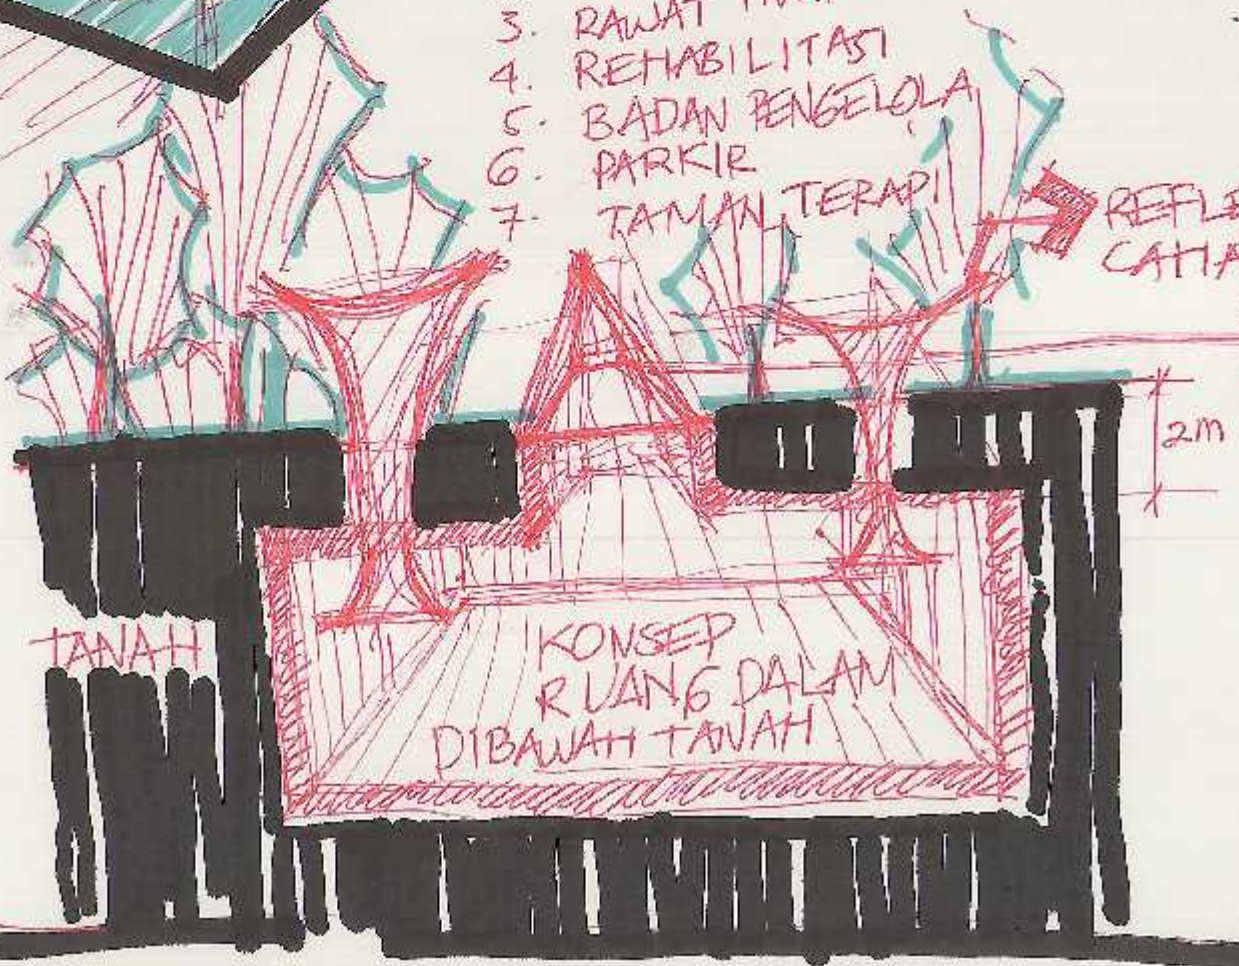 3. RAWAT
4. REHABILITASI
5. BADAN PENGELOLA
6. PARKIR
7. TAMAN TERAPI
2m
TANAH
KONSEP
RUANG DALAM
DIBAWAH TANAH